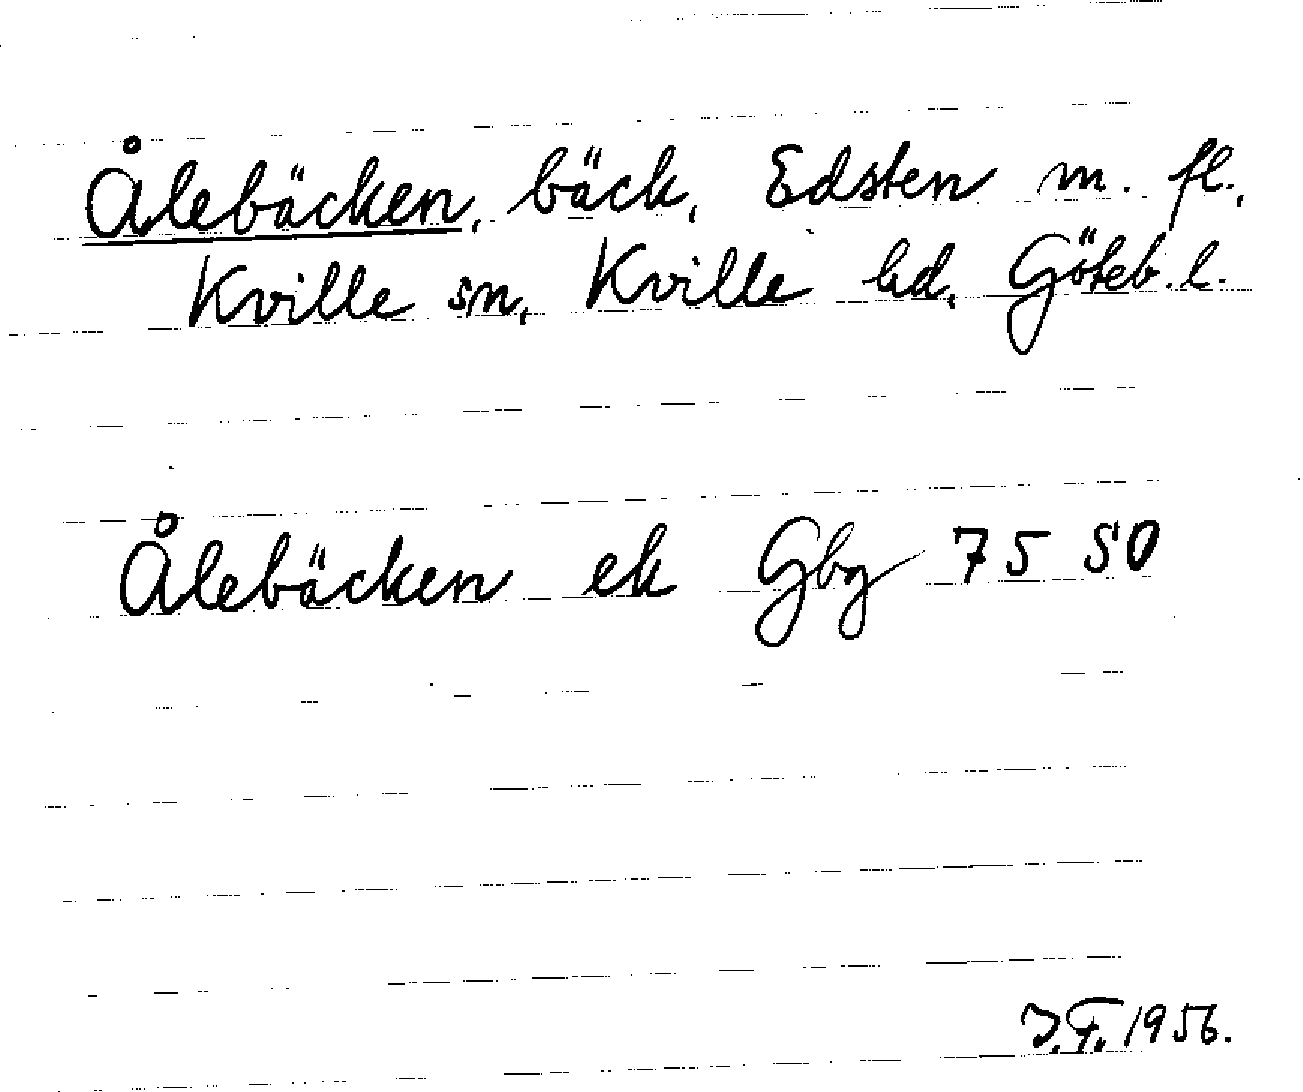 Ålebäcken, bäck, Edsten m. fl.,
Kville sn, Kville hd, Göteb. l.
Ålebäcken ek Gbg 75 50
J.F. 1956.